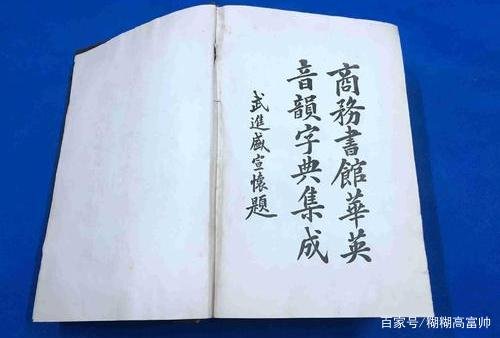 商務書館華英
音韻字典集成
武進盛宣懷題
百家号/糊糊高富帅